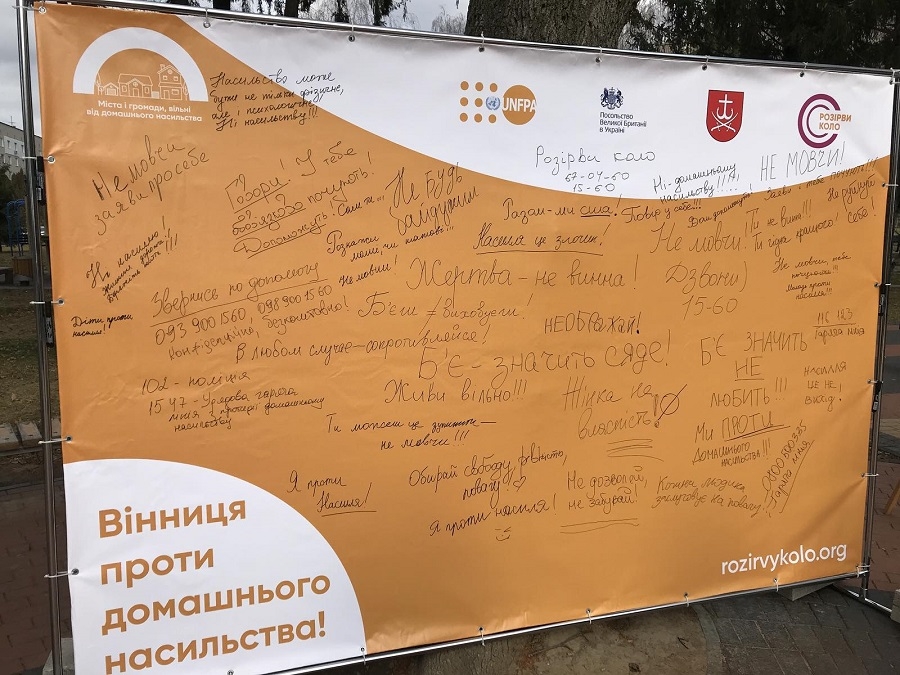 Міста і громади, вільні
від домашнього насильства
UNFPA
Посольство
Великої Британії
в Україні
РОЗІРВИ
КОЛО
Насильство може
бути не тільки фізичне,
але і психологічне,
Ні насильству!!!
Не мовчи
заяви про себе
Говори! У тебе
обов'язково почують!
Допоможуть!
Не будь
байдужим
Розірви коло
67-04-60
15-60
Ні-домашньому
насиллю
НЕ МОВЧИ!
Разом-ми сила!
Повір у себе!!!
Насилля це злочин!
Не мовчи!
Ти не вина!!!
Ти гідна кращого!
Звернись по допомогу
093 900 1560, 098 900 1560
Не мовчи!
Жертва-не винна!
Дзвони)
15-60
Діти проти
насилля!
Б'єш ≠ виховуєш!
НЕ ОБРАЖАЙ!
В любом случае-сопротивляйся!
Б'Є-значить сяде!
Б'Є ЗНАЧИТЬ
НЕ
ЛЮБИТЬ!!!
116 123
Гаряча лінія
102-поліція
1547-Урядова гаряча
лінія з протидії домашньому
насильству
Живи вільно!!!
Жінка не
власність!
НАСИЛЛЯ
ЦЕ НЕ
ВИХІД!
Ти можеш це зупинити-
не мовчи!!!
Ми ПРОТИ
ДОМАШНЬОГО
НАСИЛЬСТВА!!!
Я проти
Насилля!
Обирай свободу, рівність,
повагу!
Я проти насилля!
Не дозволяй,
не забувай!
Кожна людина
заслуговує на повагу!
Гаряча лінія
Вінниця
проти
домашнього
насильства!
rozirvykolo.org